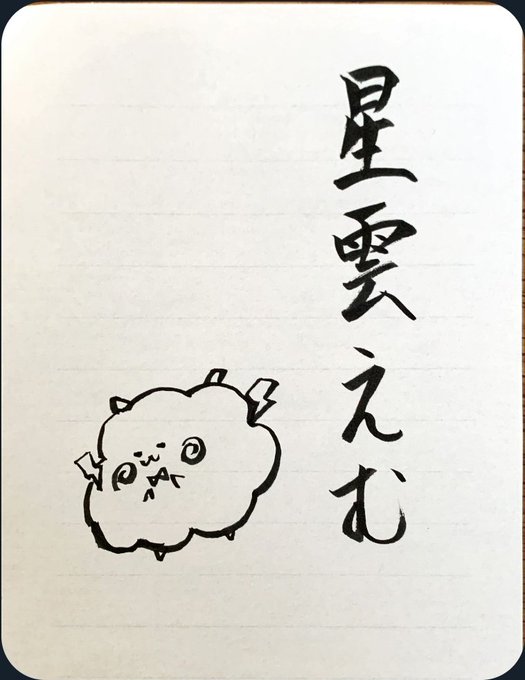 星雲えむ